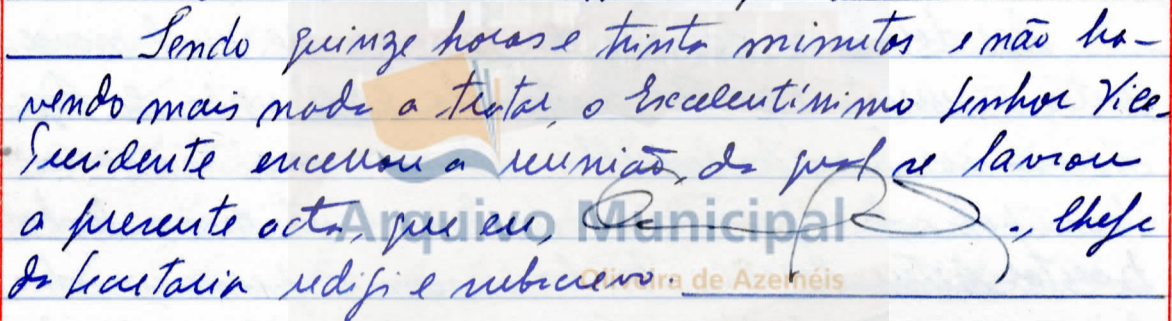 Sendo quinze horas e trinta minutos e não ha-
vendo mais nada a tratar, o Excelentíssimo Senhor Vice-
Presidente encerrou a reunião, da qual se lavrou
a presente acta, que eu, , Chefe
da Secretaria redigi e subscrevo.
Arquivo Municipal
Oliveira de Azeméis